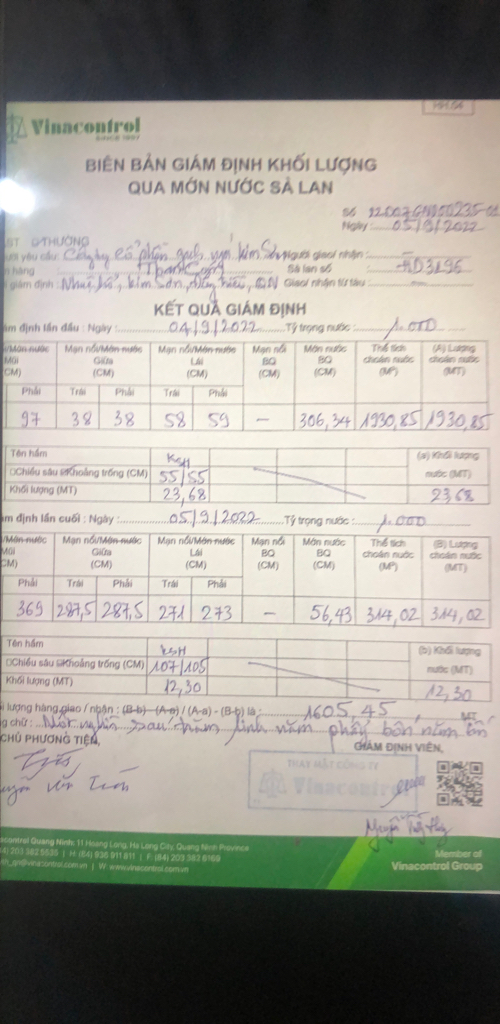 HH.04
Vinacontrol
SINCE 1957
BIÊN BẢN GIÁM ĐỊNH KHỐI LƯỢNG
QUA MỚN NƯỚC SÀ LAN
Số
Ngày: 05/9/2022
yêu cầu: Công ty cổ phần Kim Sơn Người giao/ nhận: —
hàng Sà lan số
giám định: Kim Sơn, QN Giao/ nhận từ tàu: —
KẾT QUẢ GIÁM ĐỊNH
ám định lần đầu: Ngày: 04/9/2022 Tỷ trọng nước: 1.000
Mạn nổi/Mớn nước Giữa (CM) Mạn nổi/Mớn nước Lái (CM) Mạn nổi BQ (CM) Mớn nước BQ (CM) Thể tích choán nước (M³) (A) Lượng choán nước (MT)
Phải Trái Phải Trái Phải
97 38 38 58 59 — 306,34 1930,85 1930,85
Tên hầm KSH (a) Khối lượng nước (MT)
Chiều sâu Khoảng trống (CM) 55/55
Khối lượng (MT) 23,68 23,68
ám định lần cuối: Ngày: 05/9/2022 Tỷ trọng nước: 1.000
Mạn nổi/Mớn nước Giữa (CM) Mạn nổi/Mớn nước Lái (CM) Mạn nổi BQ (CM) Mớn nước BQ (CM) Thể tích choán nước (M³) (B) Lượng choán nước (MT)
Phải Trái Phải Trái Phải
369 287,5 287,5 271 273 — 56,43 314,02 314,02
Tên hầm KSH (b) Khối lượng nước (MT)
Chiều sâu Khoảng trống (CM) 107/105
Khối lượng (MT) 12,30 12,30
lượng hàng giao / nhận: (B-b) – (A-a) / (A-a) - (B-b) là: 1605,45 MT
chữ: Một nghìn sáu trăm linh năm phẩy bốn năm
CHỦ PHƯƠNG TIỆN, GIÁM ĐỊNH VIÊN,
THAY MẶT CÔNG TY
Vinacontrol
acontrol Quang Ninh: 11 Hoang Long, Ha Long City, Quang Ninh Province
| H: (84) 936 911 811 | F: (84) 203 382 6169
@vinacontrol.com.vn | W: www.vinacontrol.com.vn
Member of
Vinacontrol Group